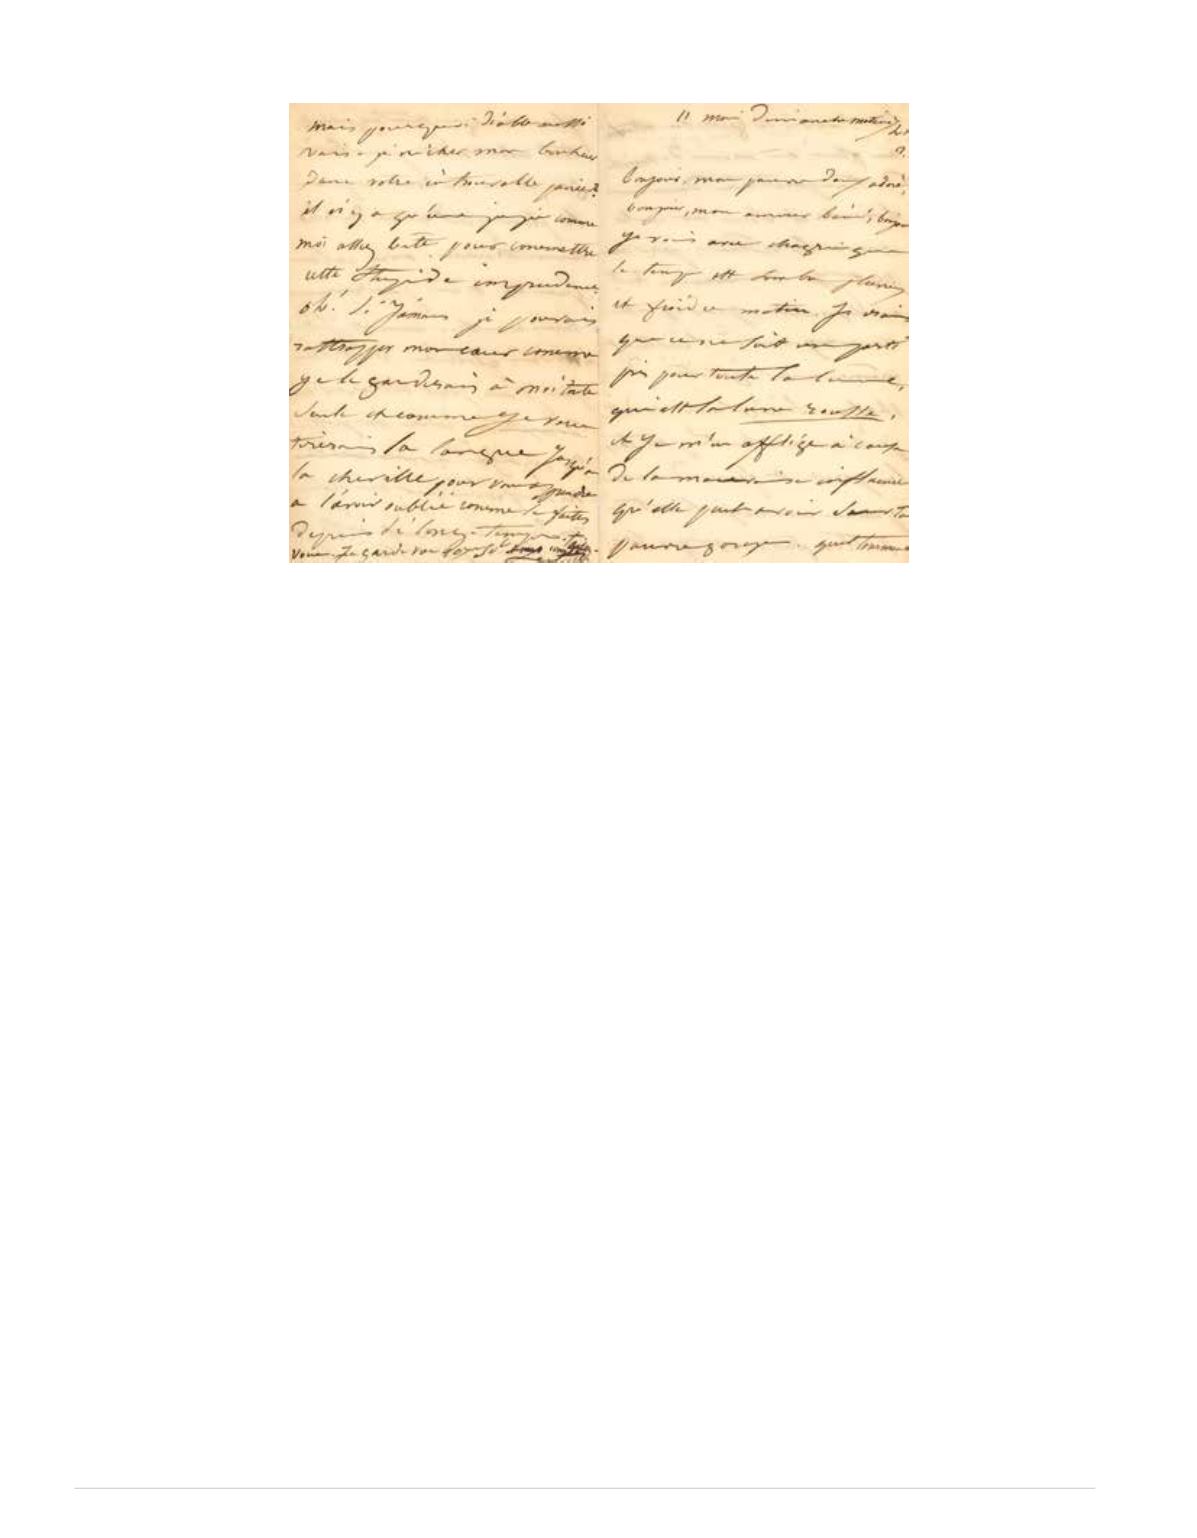 11 mai Dimanche matin
bonjour, mon pauvre doux adoré,
bonjour, mon amour béni,
je vois avec chagrin que
le temps est sombre pluvieux
et froid ce matin. Je crains
que ce ne soit un parti
pris pour toute la lune,
qui est la lune rousse,
et je m'en afflige à cause
de la mauvaise influence
qu'elle peut avoir sur ta
pauvre gorge. quel
mais pourquoi diable aussi
vais-je nicher mon bonheur
dans votre introuvable
il n'y a qu'une juju comme
moi assez bête pour commettre
cette stupide imprudence
oh! si jamais je pouvais
rattrapper mon cœur comme
je le garderais à moi toute
seule et comme je vous
tirerais la langue jusqu'à
la cheville pour vous apprendre
à l'avoir oublié comme le faites
depuis si longtemps.